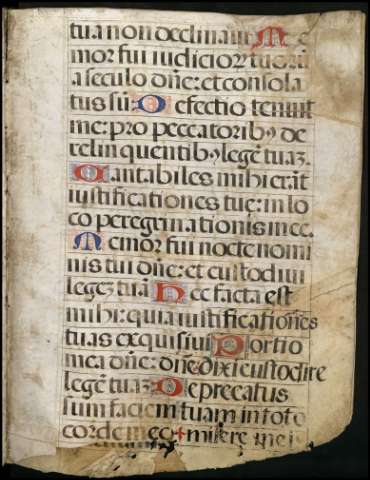 tua non declinaui: Me
mor fui iudicioꝝ tuoꝝ
a seculo dñe: et consola
tus sũ: Defectio tenuit
me: pro peccatoribꝰ de
relinquentibꝰ legẽ tuaʒ.
Cantabiles mihi erãt
iustificationes tue: in lo
co peregrinationis mee.
Memor fui nocte nomi
nis tui dñe: et custodiui
legeʒ tuã Hec facta est
mihi: quia iustificationes
tuas exquisiui Portio
mea dñe: dixi custodire
legẽ tuaʒ: Deprecatus
sum faciem tuam in toto
corde meo: misere mei